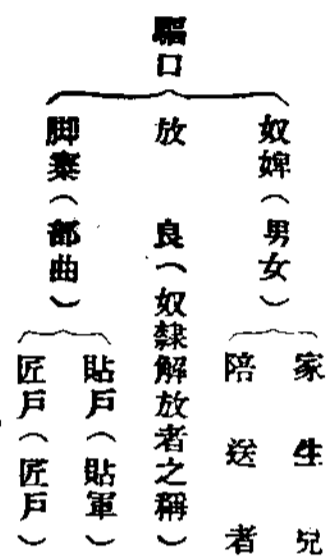 驅口
奴婢（男女）
家生兒
陪送者
放良（奴隸解放者之稱）
脚寨（部曲）
貼戶（貼軍）
匠戶（匠戶）